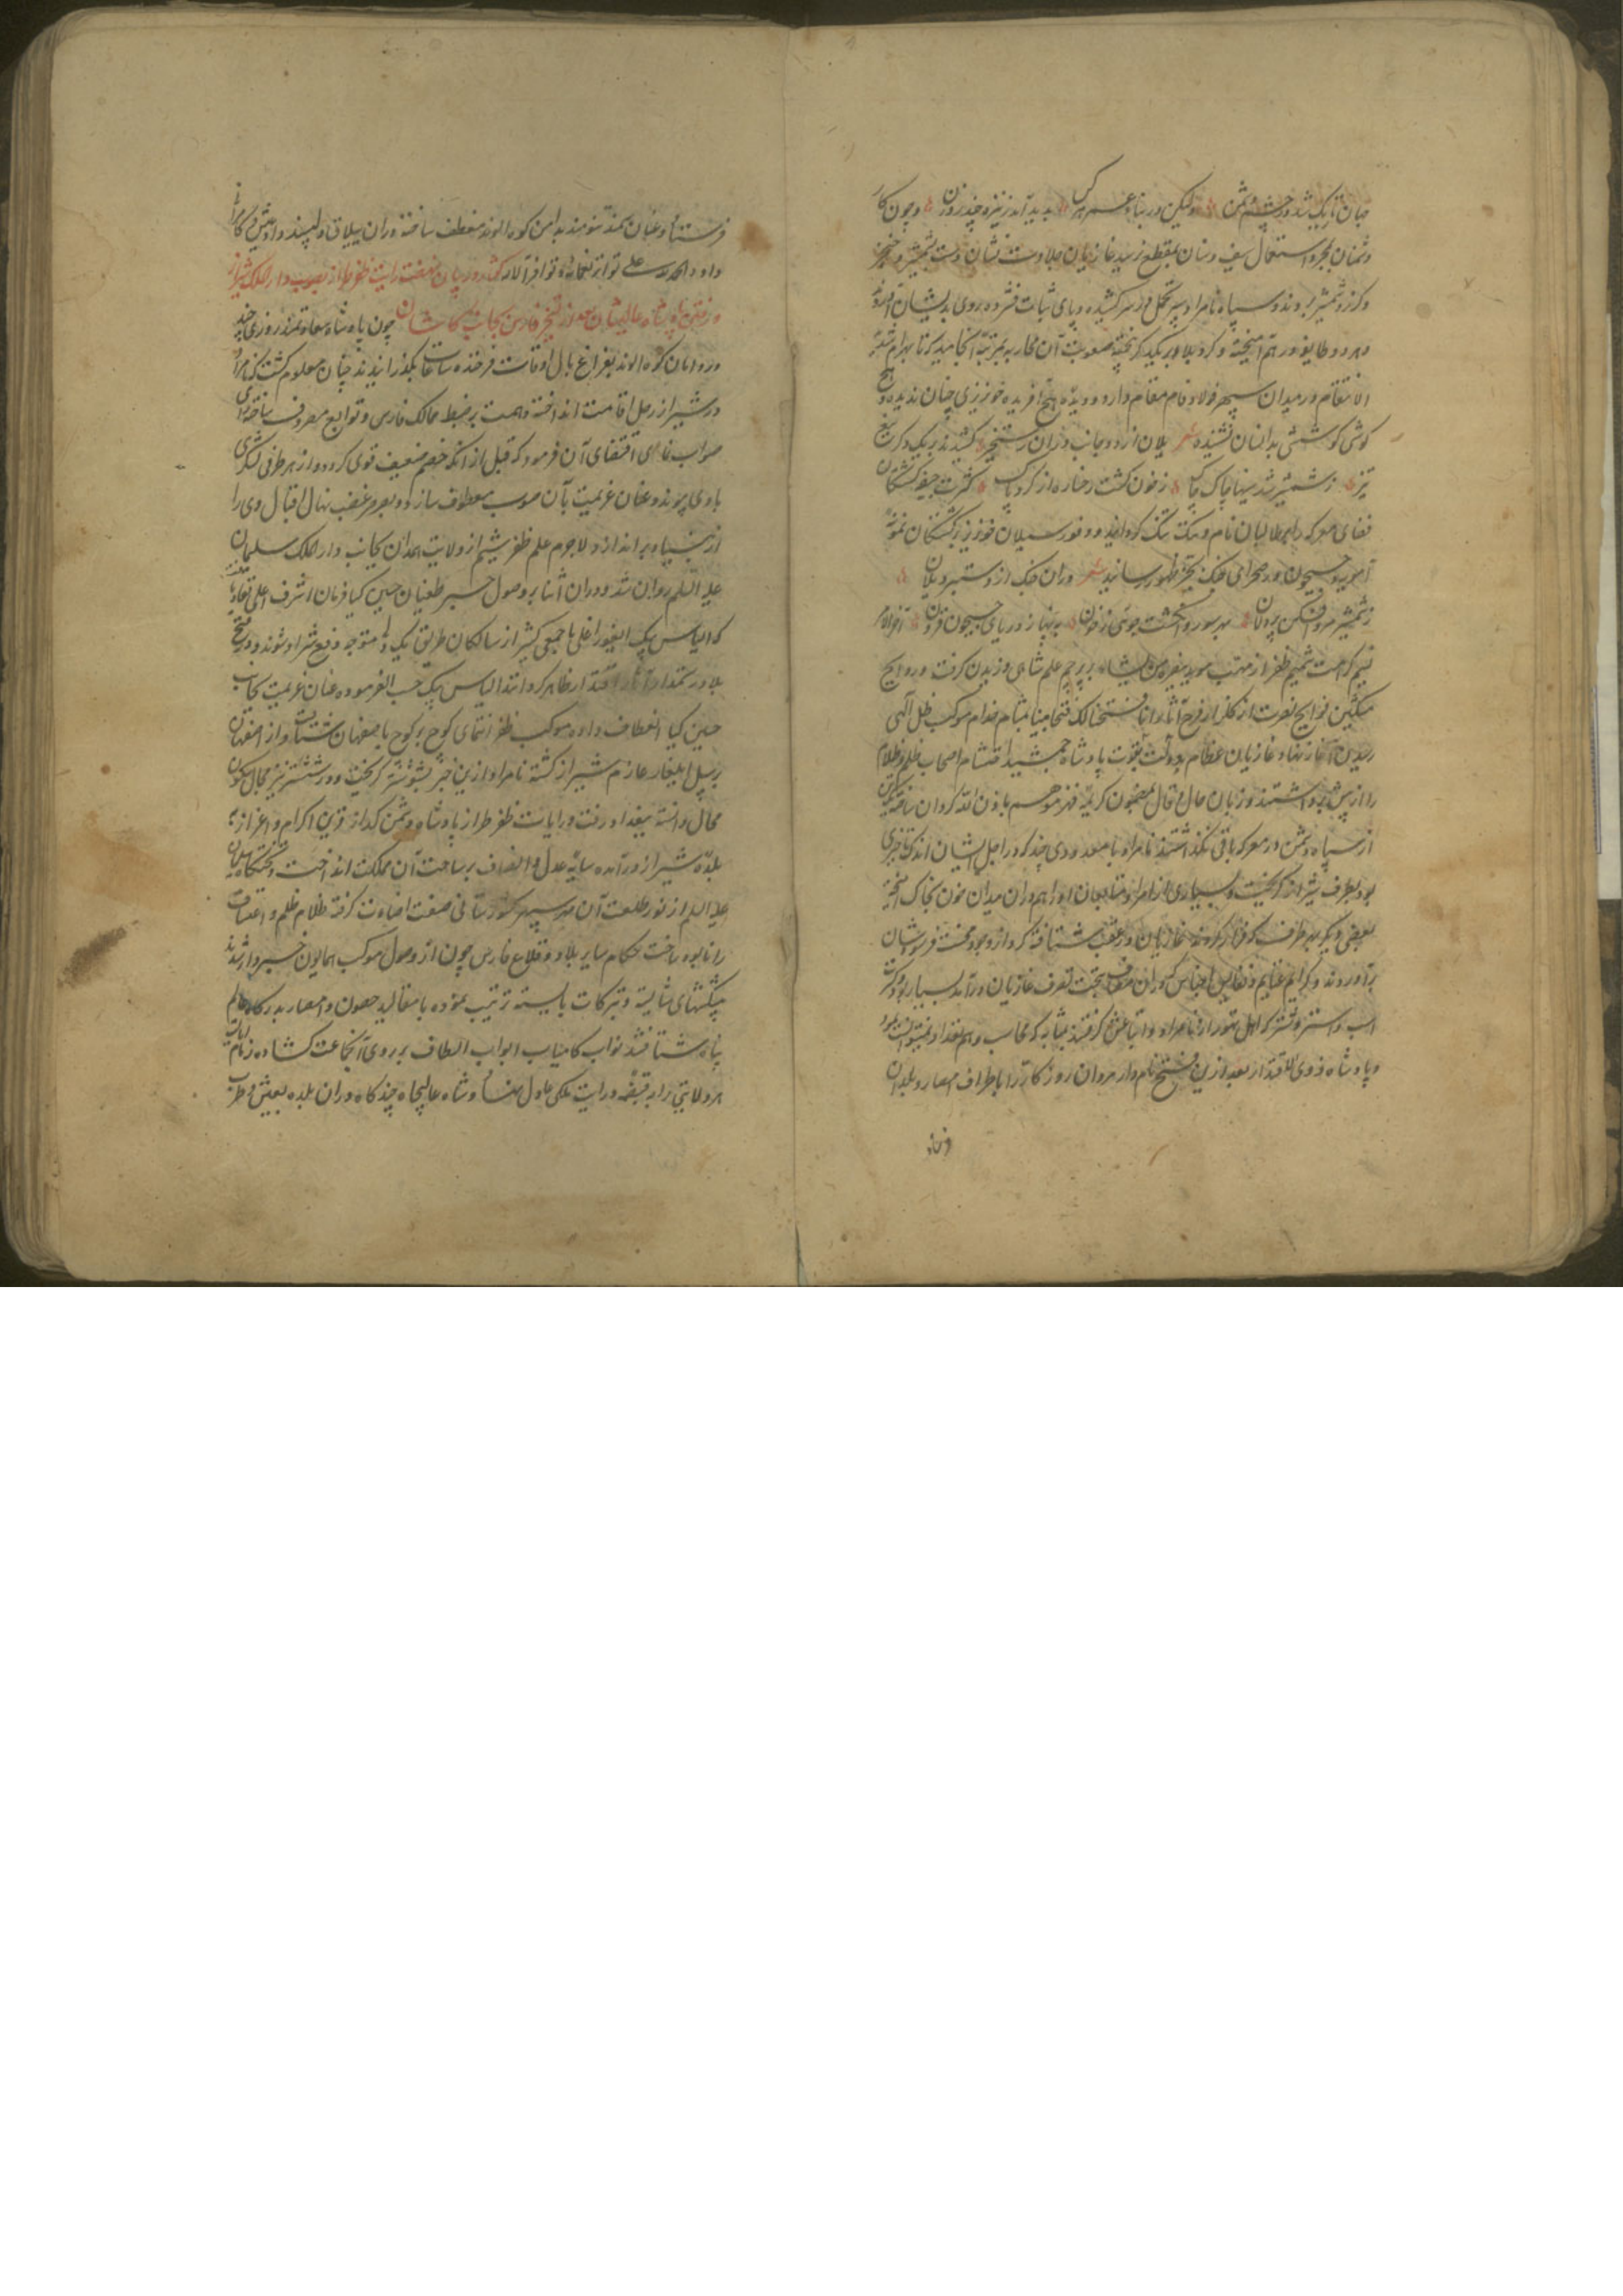 جهان تاریک شد در چشم دشمن ولیکن در بناء عمر هر کس پدید آمد ز نیزه چند روزن و چون کار
دشمنان بمجرد استعمال سیف و سنان بمقطع نرسید غازیان جلادت نشان دست بشمشیر و خنجر
و گرز و شمشیر بردند و سپاه نامراد سپر تحمل در سر کشیده و پای ثبات فشرده بروی ایشان
و هر دو طایفه در هم آمیخته و گرد بلا بر یکدیگر بیخته صعوبت آن محاربه بمرتبه انجامید که تا بهرام
انتقام در میدان سپهر فولاد فام مقام دارد دیده هیچ آفریده خونریزی چنان ندیده و هیچ
گوشی کوششی بدانسان نشنیده شعر یلان از دو جانب در آن رستخیز کشیدند بر یکدگر تیغ
تیز ز شمشیر شد سینها چاک چاک ز خون گشت رخساره از گرد پاک کثرت جیفه کشتگان
فضای معرکه را بر طالبان نام و ننگ تنگ گردانید و وفور سیلان خون نیز کشتگان نمونه
آمویه و جیحون در صحرای جنگ بحیز ظهور رسانید شعر در آن جنگ از دستبرد یلان
ز شمشیر مرد افکن پردلان بهر سو روان گشت جویی ز خون به پهنا ز دریای جیحون فزون آخر الامر
نسیم کرامت شمیم ظفر از مهب موید بنصره من یشاء بر پرچم علم شاهی وزیدن گرفت و روایح
مشکین فوایح نصرت از گلزار فرح آثار انا فتحنا لک فتحا مبینا بمشام خدام موکب ظل الهی
رسیدن آغاز نهاد و غازیان عظام بدولت بیقوت پادشاه جمشید احتشام اصحاب ظلم و ظلام
را از پیش برداشتند و زبان حال و قال بمضمون کریمه فهزموهم باذن الله گردان ساخته
از سپاه دشمن در معرکه باقی نگذاشتند نامراد با معدودی چند که در اجل ایشان اندک تاخیری
بود بطرف شیراز گریخت و بسیاری از امرا و متابعان او را هم در آن میدان خون بخاک آمیخته
بعضی دیگر بهر طرف که فرار کردند غازیان در عقب شتافته گرد از وجود محنت فرسودشان
برآوردند و کرایم غنایم و نفایس اجناس که در آن مصاف بتحت تصرف غازیان درآمد بسیار بود
اسب و استر و شتر که اهل تهور از نامراد و اتباعش گرفتند بمثابه که محاسب وهم تعداد نتوانست نمود
و پادشاه ذوی الاقتدار بعد ازین فتح نامدار مردان روزگار را باطراف امصار و بلدان
فرستاد و عنان سمند تنومند بدامن کوه الوند منعطف ساخته در آن ییلاق دلپسند داد عیش و کامرانی
داد و الحمد لله علی تواتر نعمائه و توافر آلائه گفتار در بیان نهضت رایت ظفر طراز بصوب دار الملک شیراز
و رفتن پادشاه عالیشان بعد از تسخیر فارس بجانب کاشان چون پادشاه سعادتمند روزی چند
در دامان کوه الوند بفراغ بال اوقات فرخنده ساعات بگذرانیدند چنان معلوم گشت که نامراد
در شیراز رحل اقامت انداخته و همت بر ضبط ممالک فارس و توابع مصروف ساخته رای
صواب نمای اقتضای آن فرمود که قبل از آنکه خصم ضعیف قوی گردد و از هر طرفی لشکری
باو پیوندد عنان عزیمت بآن صوب معطوف سازد و بصرصر غضب نهال اقبال وی را
از بیخ و بنیاد براندازد لاجرم علم ظفر شیم از ولایت همدان بجانب دار الملک سلیمان
علیه السلام روان شد و در آن اثنا بر وصول خبر طغیان حسین کیا فرمان اشرف اعلی نفاذ یافت
که الیاس بیک ایغور اغلی با جمعی کثیر از سالکان طریق یک دلی متوجه دفع شر او شوند و در فتح
بلاد رستمدار آثار اقتدار ظاهر گردانند الیاس بیک حسب الفرموده عنان عزیمت بجانب
حسین کیا انعطاف داده موکب ظفر انتمای کوچ بر کوچ باصفهان شتافت و از اصفهان
بر سبیل ایلغار عازم شیراز گشته نامراد ازین خبر بشوشتر گریخت و در شوشتر نیز مجال سکون
محال دانسته ببغداد رفت و رایات ظفر طراز پادشاه دشمن گداز قرین اکرام و اعزاز به
بلده شیراز درآمده سایه عدل و انصاف بر ساحت آن مملکت انداخت و تختگاه سلیمان
علیه السلام از نور طلعت آن مهر سپهر کشورستانی صفت اضاءت گرفته ظلام ظلم و اعتساف
را نابود ساخت حکام سایر بلاد و قلاع فارس چون از وصول موکب همایون خبردار شدند
پیشکشهای شایسته و تبرکات بایسته ترتیب نموده با مقالید حصون و امصار بدرگاه عالم
پناه شتافتند نواب کامیاب ابواب الطاف بر روی آنجماعت گشاده زمام ایالت
هر ولایتی را بقبضه درایت ملکی عادل نهاد و شاه عالیجاه چندگاه در آن بلده بعیش و طرب